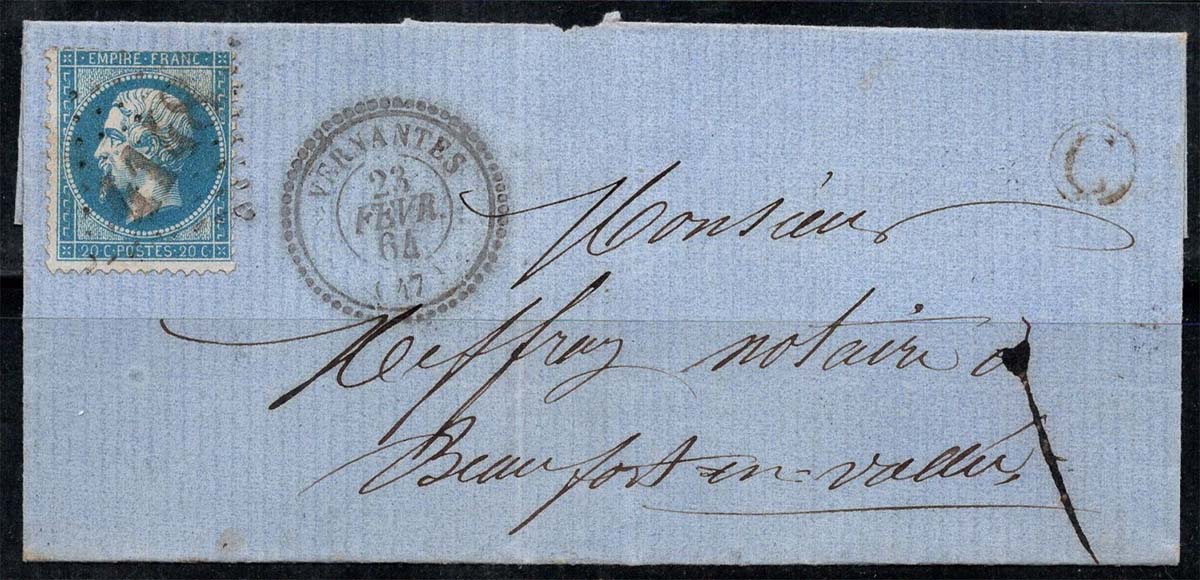 EMPIRE · FRANC
20 C · POSTES · 20 C
VERNANTES
23
FEVR.
64
(47)
C
Monsieur
Meffray notaire à
Beaufort-en-vallée